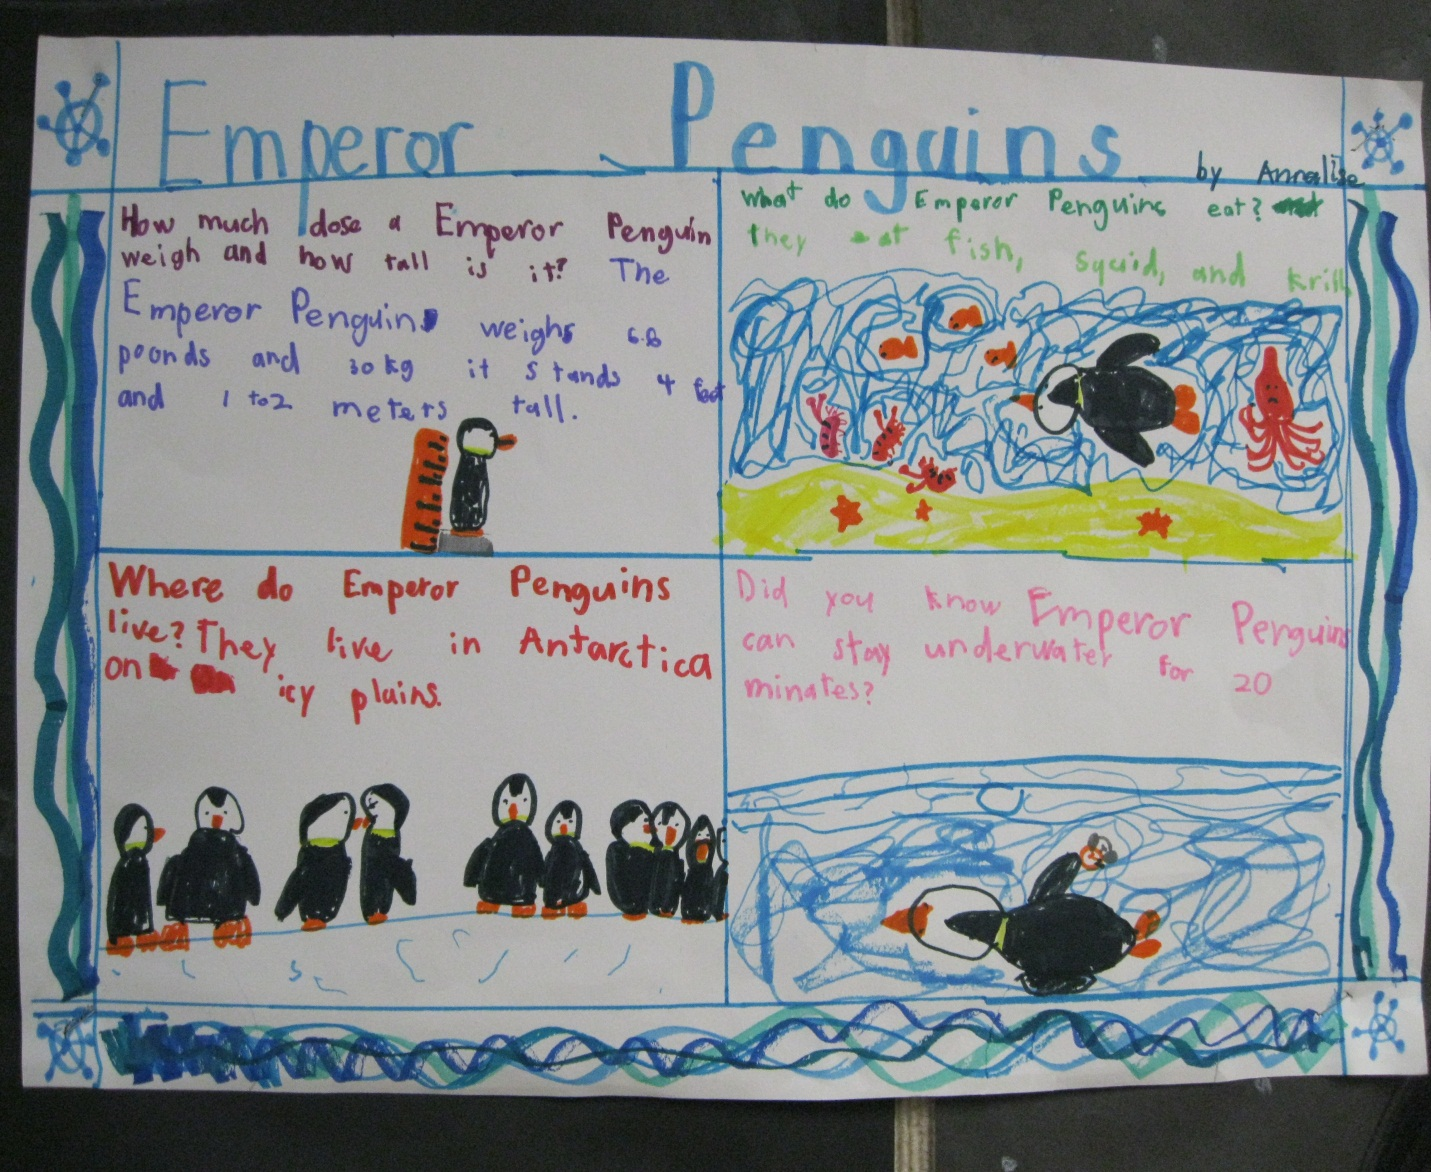 Emperor Penguins
by Annalise
How much dose a Emperor Penguin
weigh and how tall is it? The
Emperor Penguins weighs 6.8
poonds and 30 kg it stands 4 feet
and 1 to 2 meters tall.
What do Emperor Penguins eat?
they eat fish, squid, and krill
Where do Emperor Penguins
live? They live in Antarctica
on icy plains.
Did you know Emperor Penguins
can stay underwater for 20
minates?